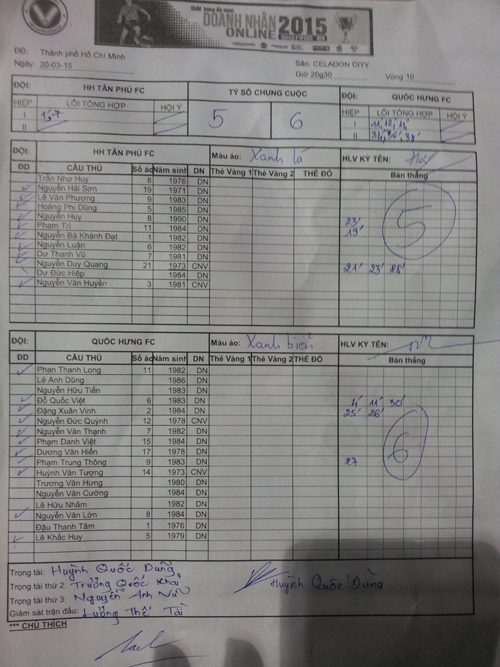 DOANH NHÂN 2015
ONLINE
ĐĐ: Thành phố Hồ Chí Minh Sân: CELADON CITY
Ngày: 20-03-15 Giờ 20g30 Vòng 16
ĐỘI: HH TÂN PHÚ FC TỶ SỐ CHUNG CUỘC ĐỘI: QUỐC HƯNG FC
HIỆP LỖI TỔNG HỢP HỘI Ý 5 6 HIỆP LỖI TỔNG HỢP HỘI Ý
I I
II II
ĐỘI: HH TÂN PHÚ FC Màu áo: Xanh lá HLV KÝ TÊN:
ĐD CẦU THỦ Số áo Năm sinh DN Thẻ Vàng 1 Thẻ Vàng 2 THẺ ĐỎ Bàn thắng
Trần Như Huy 8 1976 DN
Nguyễn Hải Sơn 19 1971 DN
Lê Văn Phương 9 1983 DN
Hoàng Phi Dũng 5 1985 DN
Nguyễn Huy 8 1990 DN 23'
Phạm Trí 11 1984 DN 19'
Nguyễn Bá Khánh Đạt 1 1982 DN
Nguyễn Luận 6 1982 DN
Dư Thanh Vũ 7 1981 DN
Nguyễn Duy Quang 21 1973 CNV 21' 23' 28'
Dư Đức Hiệp 1984 DN
Nguyễn Văn Huyên 3 1981 CNV
5
ĐỘI: QUỐC HƯNG FC Màu áo: Xanh biển HLV KÝ TÊN:
ĐD CẦU THỦ Số áo Năm sinh DN Thẻ Vàng 1 Thẻ Vàng 2 THẺ ĐỎ Bàn thắng
Phan Thanh Long 11 1982 DN
Lê Anh Dũng 1986 DN
Nguyễn Hữu Tiến 1983 DN
Đỗ Quốc Việt 6 1983 DN 4' 11' 30'
Đặng Xuân Vinh 2 1984 DN 25' 26'
Nguyễn Đức Quỳnh 12 1978 CNV
Nguyễn Văn Thạnh 7 1982 DN
Phạm Danh Việt 15 1984 DN
Dương Văn Hiền 17 1978 DN
Phạm Trung Thông 9 1983 DN 27
Huỳnh Văn Tượng 14 1973 CNV
Trương Văn Hưng 1980 DN
Nguyễn Văn Cường 1984 DN
Lê Hữu Nhâm 1982 DN
Nguyễn Văn Lớn 8 1984 DN
Đậu Thanh Tâm 1 1976 DN
Lê Khắc Huy 5 1979 DN
6
Trọng tài: Huỳnh Quốc Dũng
Trọng tài thứ 2: Trương Quốc Khải Huỳnh Quốc Dũng
Trọng tài thứ 3: Nguyễn Anh Vũ
Giám sát trận đấu: Lương Thế Tài
*** CHÚ THÍCH